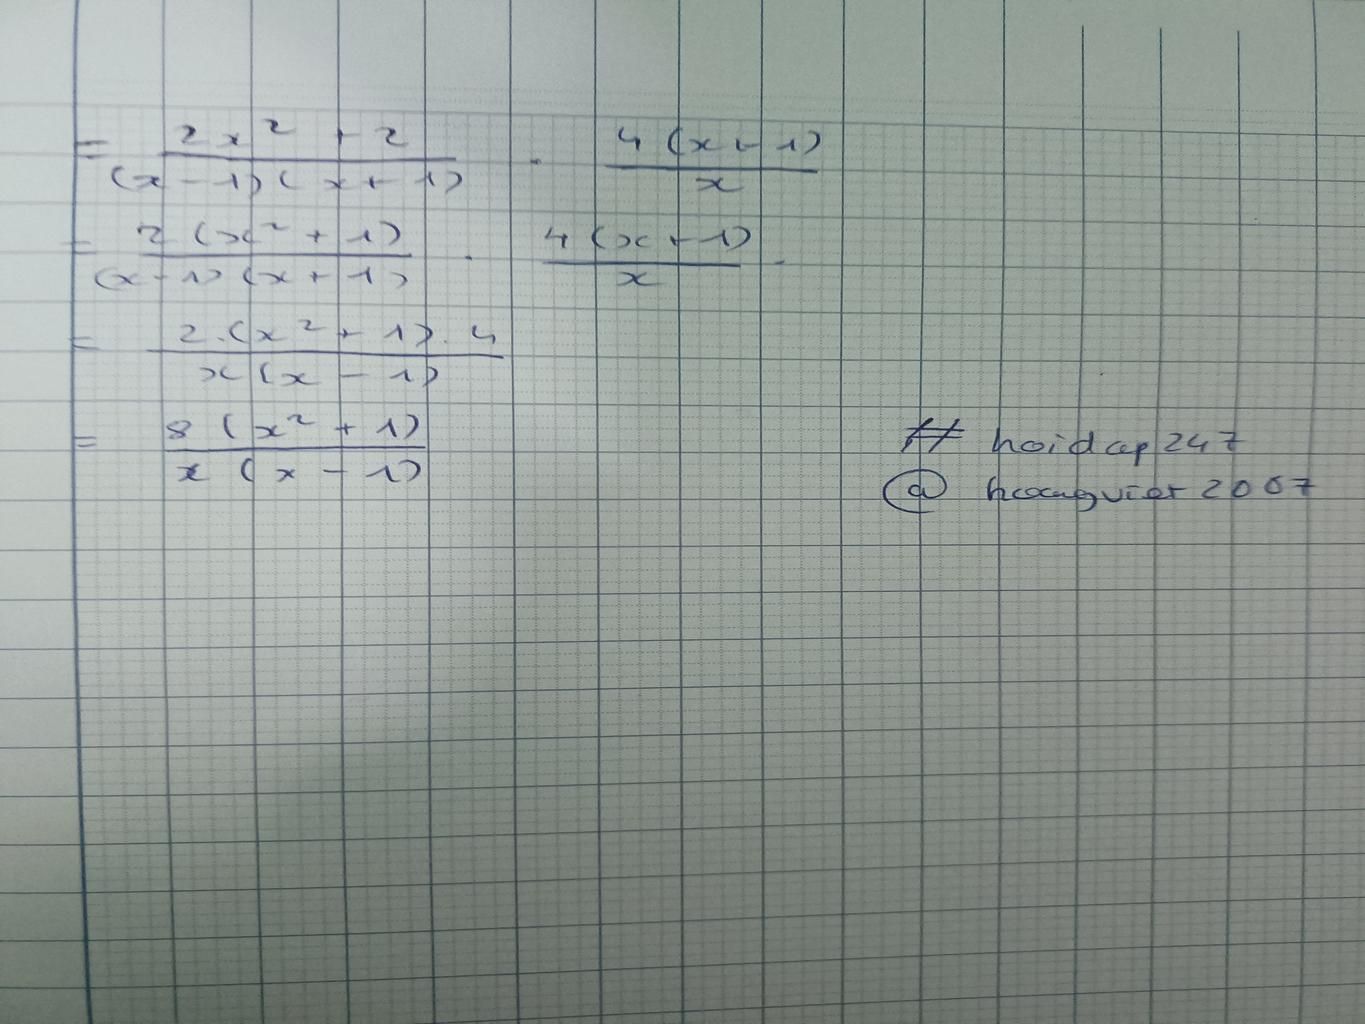 = (2x² + 2)/((x - 1)(x + 1)) . (4(x + 1))/x
= (2(x² + 1))/((x - 1)(x + 1)) . (4(x + 1))/x .
= (2.(x² + 1).4)/(x(x - 1))
= (8(x² + 1))/(x(x - 1))
# hoidap247
@ hoangviet2007